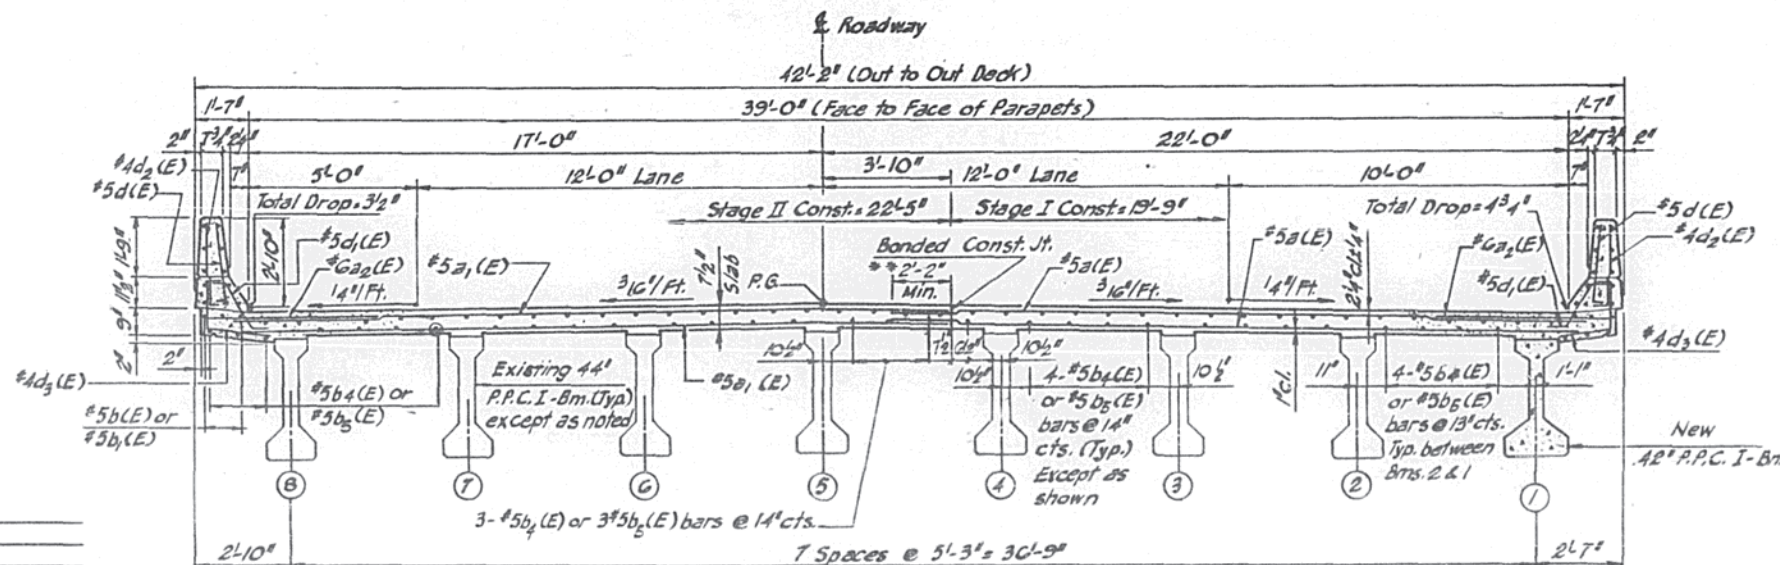 ℄ Roadway
42'-2" (Out to Out Deck)
1'-7"
39'-0" (Face to Face of Parapets)
1'-7"
2"
7¾"
2¼"
17'-0"
22'-0"
2¼"
7¾"
2"
#4d2(E)
#5d(E)
7"
5'-0"
12'-0" Lane
3'-10"
12'-0" Lane
10'-0"
7"
Total Drop = 3½"
Stage II Const. = 22'-5"
Stage I Const. = 19'-9"
Total Drop = 4¾"
#5d(E)
#4d2(E)
1'-9"
2'-10"
#5d1(E)
#6a2(E)
#5a1(E)
7½" Slab
Bonded Const. Jt.
**2'-2"
Min.
#5a(E)
#5a(E)
2¼"cl. ± ¼"
#6a2(E)
#5d1(E)
11"
9"
2"
2"
¼"/Ft.
3/16"/Ft.
P.G.
3/16"/Ft.
¼"/Ft.
#4d3(E)
#4d3(E)
#5b(E) or
#5b1(E)
#5b4(E) or
#5b5(E)
Existing 44"
P.P.C. I-Bm. (Typ.)
except as noted
10½"
#5a1(E)
10½"
10½"
4-#5b4(E)
or #5b5(E)
bars @ 14"
cts. (Typ.)
Except as
shown
10½"
1"cl.
11"
4-#5b4(E)
or #5b5(E)
bars @ 13" cts.
Typ. between
Bms. 2 & 1
1'-1"
New
42" P.P.C. I-Bm.
8
7
6
5
4
3
2
1
3-#5b4(E) or 3#5b5(E) bars @ 14" cts.
2'-10"
7 Spaces @ 5'-3" = 36'-9"
2'-7"